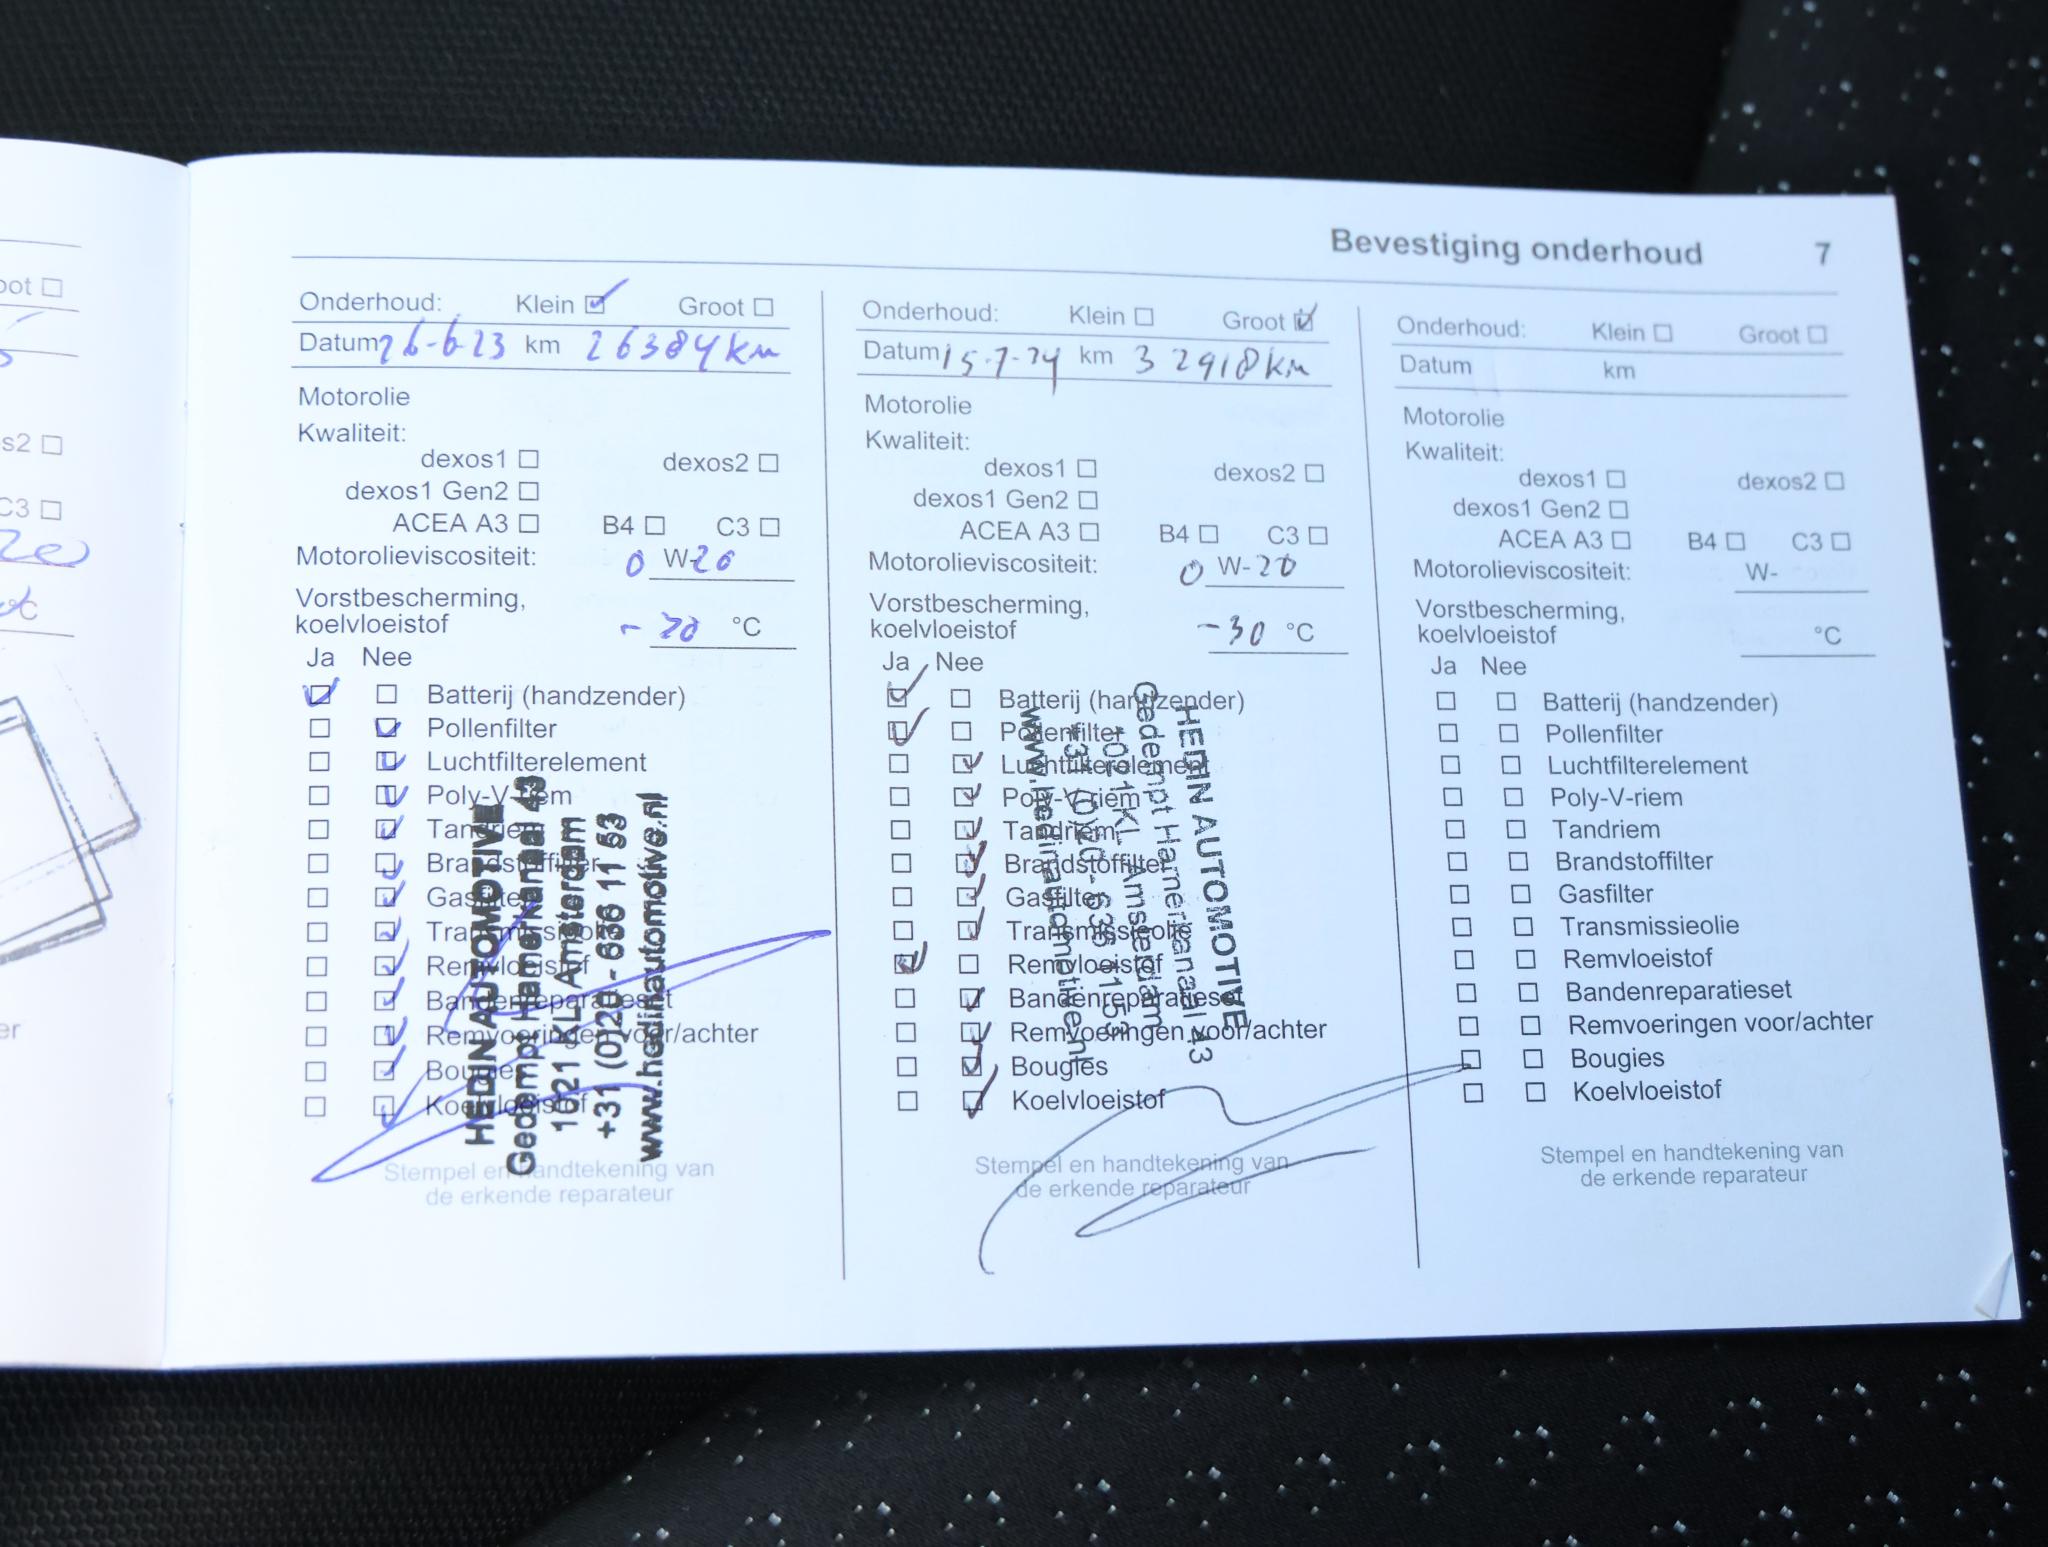 oot ☐
s2 ☐
C3 ☐
°C
er
Bevestiging onderhoud 7
Onderhoud: Klein ☑ Groot ☐
Datum 26-6-23 km 26384 km
Motorolie
Kwaliteit:
dexos1 ☐ dexos2 ☐
dexos1 Gen2 ☐
ACEA A3 ☐ B4 ☐ C3 ☐
Motorolieviscositeit: 0 W-20
Vorstbescherming,
koelvloeistof °C
Ja Nee
☑ ☐ Batterij (handzender)
☐ ☑ Pollenfilter
☐ ☑ Luchtfilterelement
☐ ☑ Poly-V-riem
☐ ☑ Tandriem
☐ ☑ Brandstoffilter
☐ ☑ Gasfilter
☐ ☑ Transmissieolie
☐ ☑ Remvloeistof
☐ ☑ Bandenreparatieset
☐ ☑ Remvoeringen voor/achter
☐ ☑ Bougies
☐ ☑ Koelvloeistof
HEDIN AUTOMOTIVE
Gedempt Hamerkanaal 43
1021 KL Amsterdam
+31 (0)20 - 636 11 53
www.hedinautomotive.nl
Stempel en handtekening van
de erkende reparateur
Onderhoud: Klein ☐ Groot ☑
Datum 15-7-24 km 32918 km
Motorolie
Kwaliteit:
dexos1 ☐ dexos2 ☐
dexos1 Gen2 ☐
ACEA A3 ☐ B4 ☐ C3 ☐
Motorolieviscositeit: 0 W-20
Vorstbescherming,
koelvloeistof -30 °C
Ja Nee
☑ ☐ Batterij (handzender)
☑ ☐ Pollenfilter
☐ ☑ Luchtfilterelement
☐ ☑ Poly-V-riem
☐ ☑ Tandriem
☐ ☑ Brandstoffilter
☐ ☑ Gasfilter
☐ ☑ Transmissieolie
☑ ☐ Remvloeistof
☐ ☑ Bandenreparatieset
☐ ☑ Remvoeringen voor/achter
☐ ☑ Bougies
☐ ☑ Koelvloeistof
HEDIN AUTOMOTIVE
Gedempt Hamerkanaal 43
1021 KL Amsterdam
+31 (0)20 - 636 11 53
www.hedinautomotive.nl
Stempel en handtekening van
de erkende reparateur
Onderhoud: Klein ☐ Groot ☐
Datum km
Motorolie
Kwaliteit:
dexos1 ☐ dexos2 ☐
dexos1 Gen2 ☐
ACEA A3 ☐ B4 ☐ C3 ☐
Motorolieviscositeit: W-
Vorstbescherming,
koelvloeistof °C
Ja Nee
☐ ☐ Batterij (handzender)
☐ ☐ Pollenfilter
☐ ☐ Luchtfilterelement
☐ ☐ Poly-V-riem
☐ ☐ Tandriem
☐ ☐ Brandstoffilter
☐ ☐ Gasfilter
☐ ☐ Transmissieolie
☐ ☐ Remvloeistof
☐ ☐ Bandenreparatieset
☐ ☐ Remvoeringen voor/achter
☐ ☐ Bougies
☐ ☐ Koelvloeistof
Stempel en handtekening van
de erkende reparateur